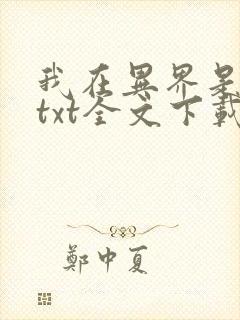 我在異界是
txt全文下載
鄭中夏